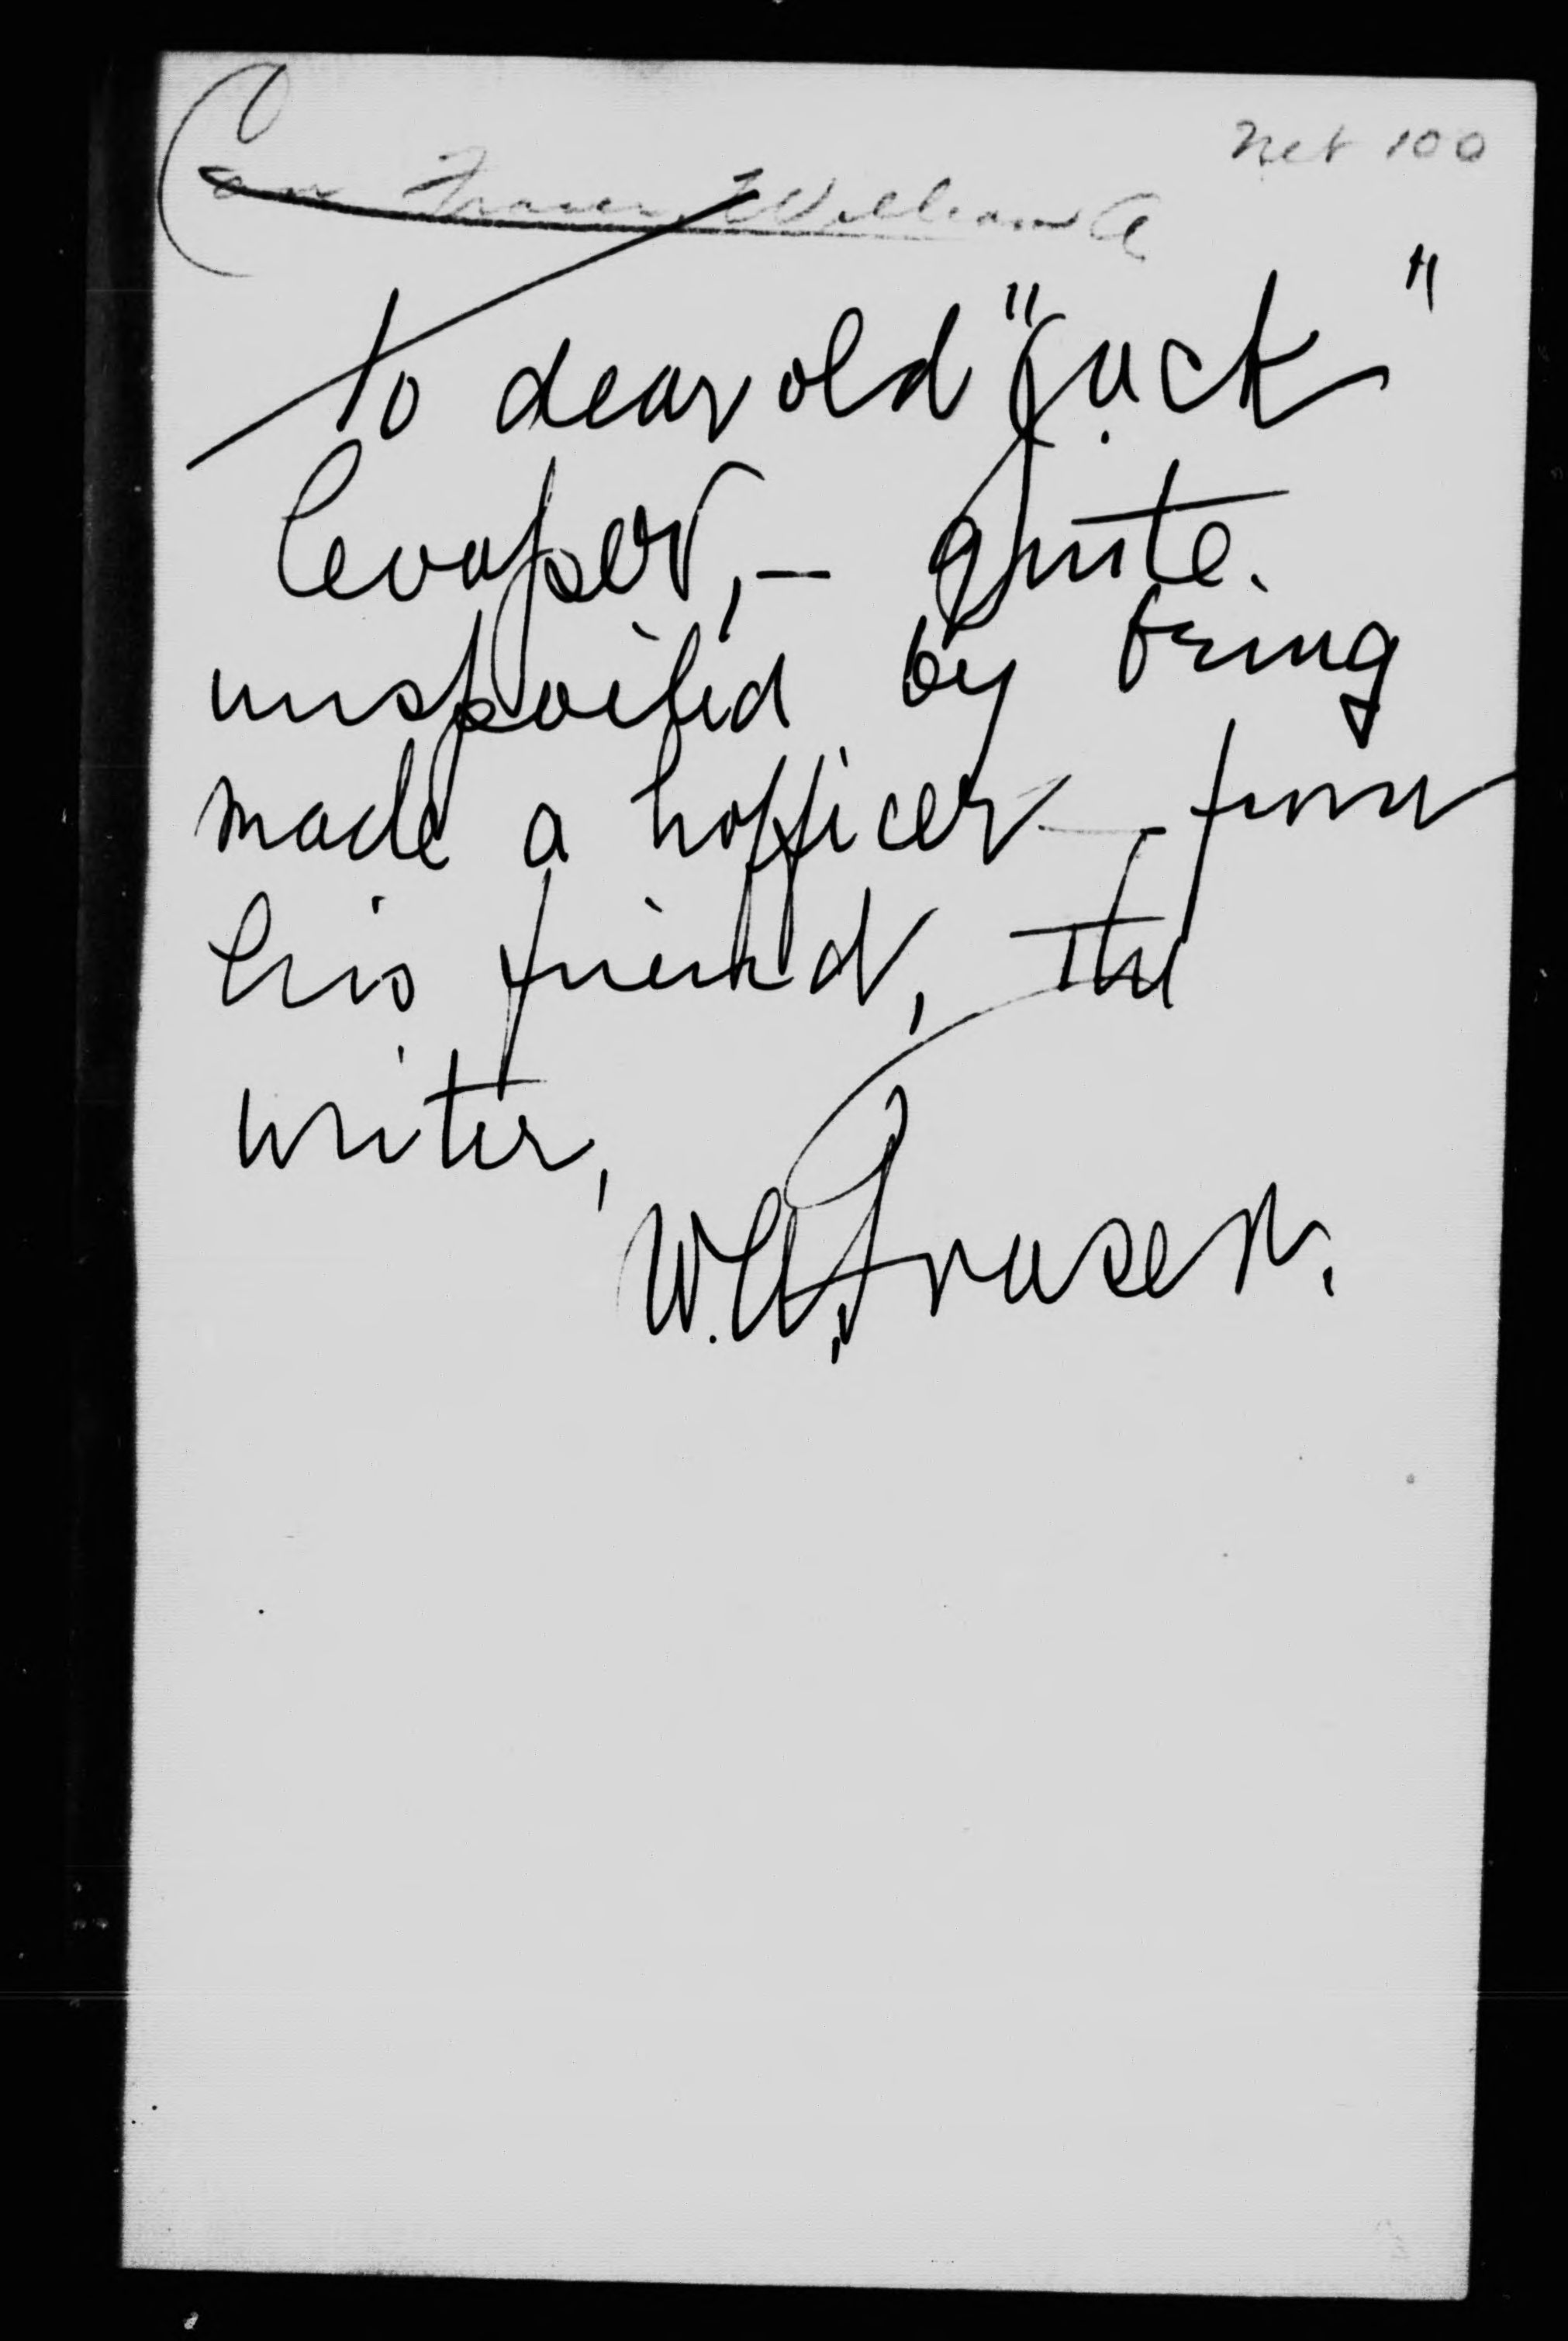 net 100
Can Fraser, William A
To dear old "Jack"
Cooper, — quite
unspoiled by being
made a hofficer — from
his friend, the
writer,
W.A. Fraser.